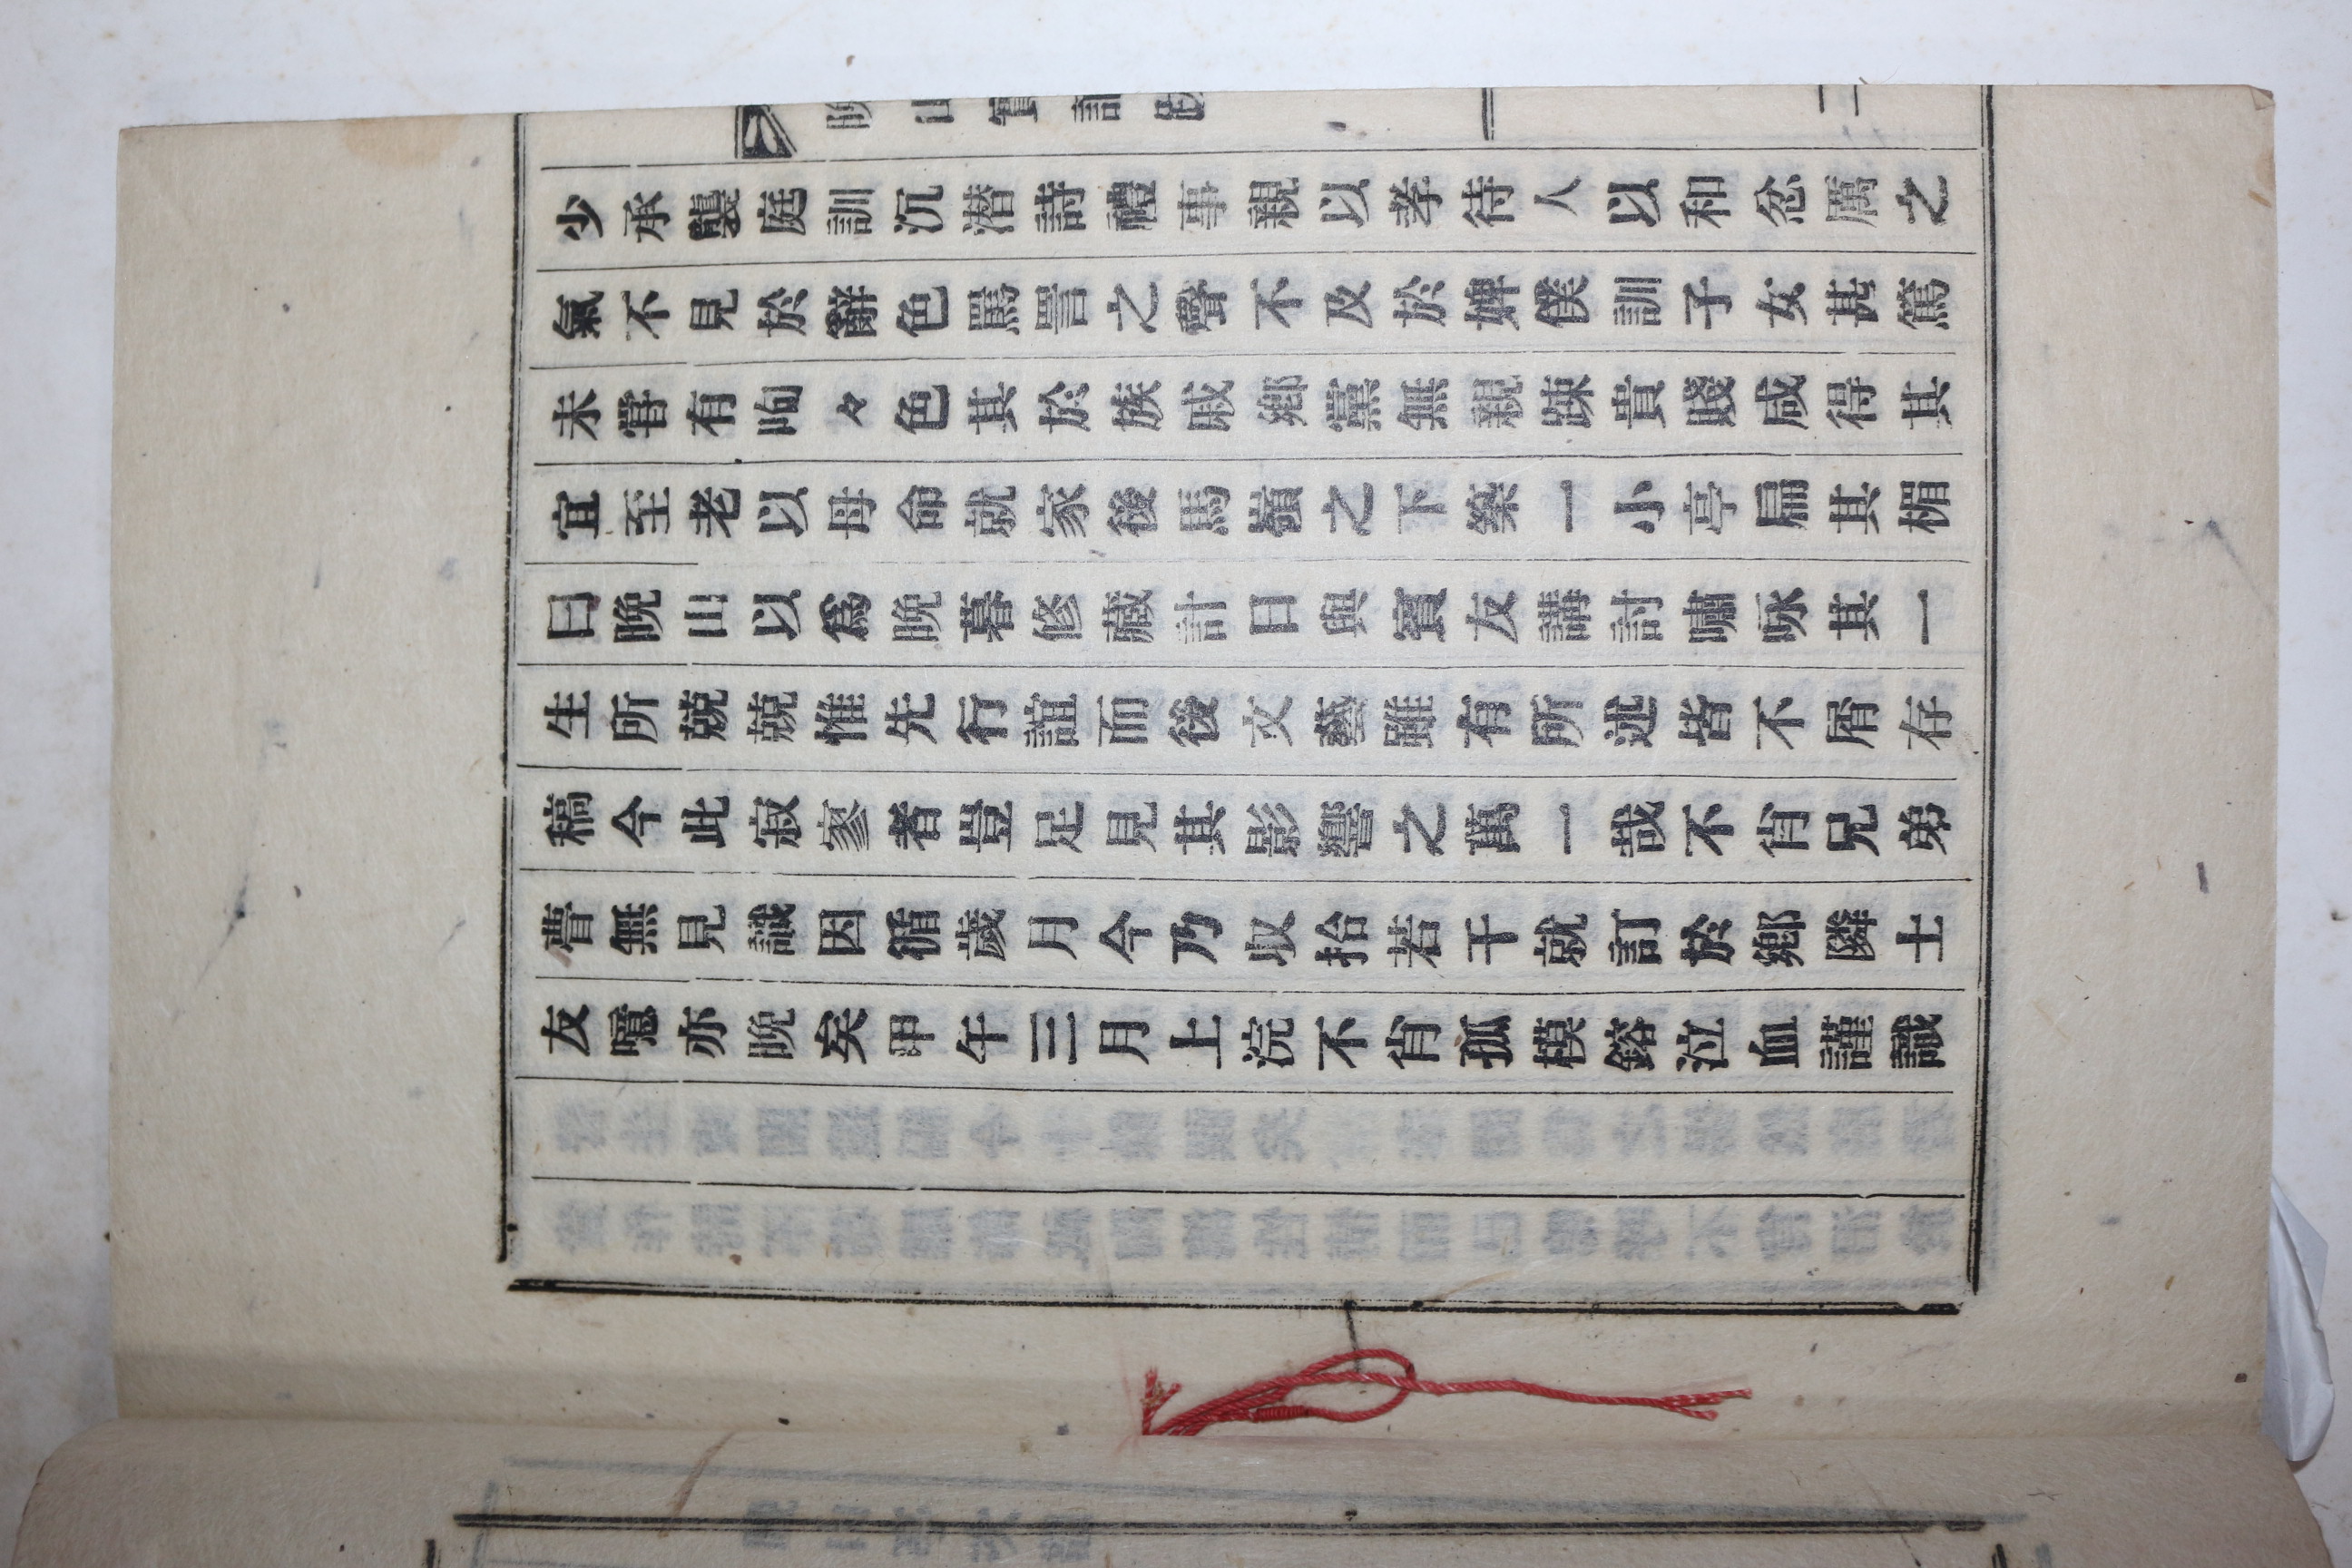 少承襲庭訓沉潜詩禮事親以孝待人以和忿厲之
氣不見於辭色罵詈之聲不及於婢僕訓子女甚篤
未甞有呴々色其於族戚鄕黨無親踈貴賤咸得其
宜至老以母命就家後馬嶺之下築一小亭扁其楣
曰晩山以爲晩暮修藏計日與賓友講討嘯咏其一
生所兢兢惟先行誼而後文藝雖有所述皆不屑存
稿今此寂寥者豈足見其影響之萬一哉不肖兄弟
瞢無見識因循歲月今乃収拾若干就訂於鄕隣士
友噫亦晩矣甲午三月上浣不肖孤模鎔泣血謹識
晩山實記跋
二